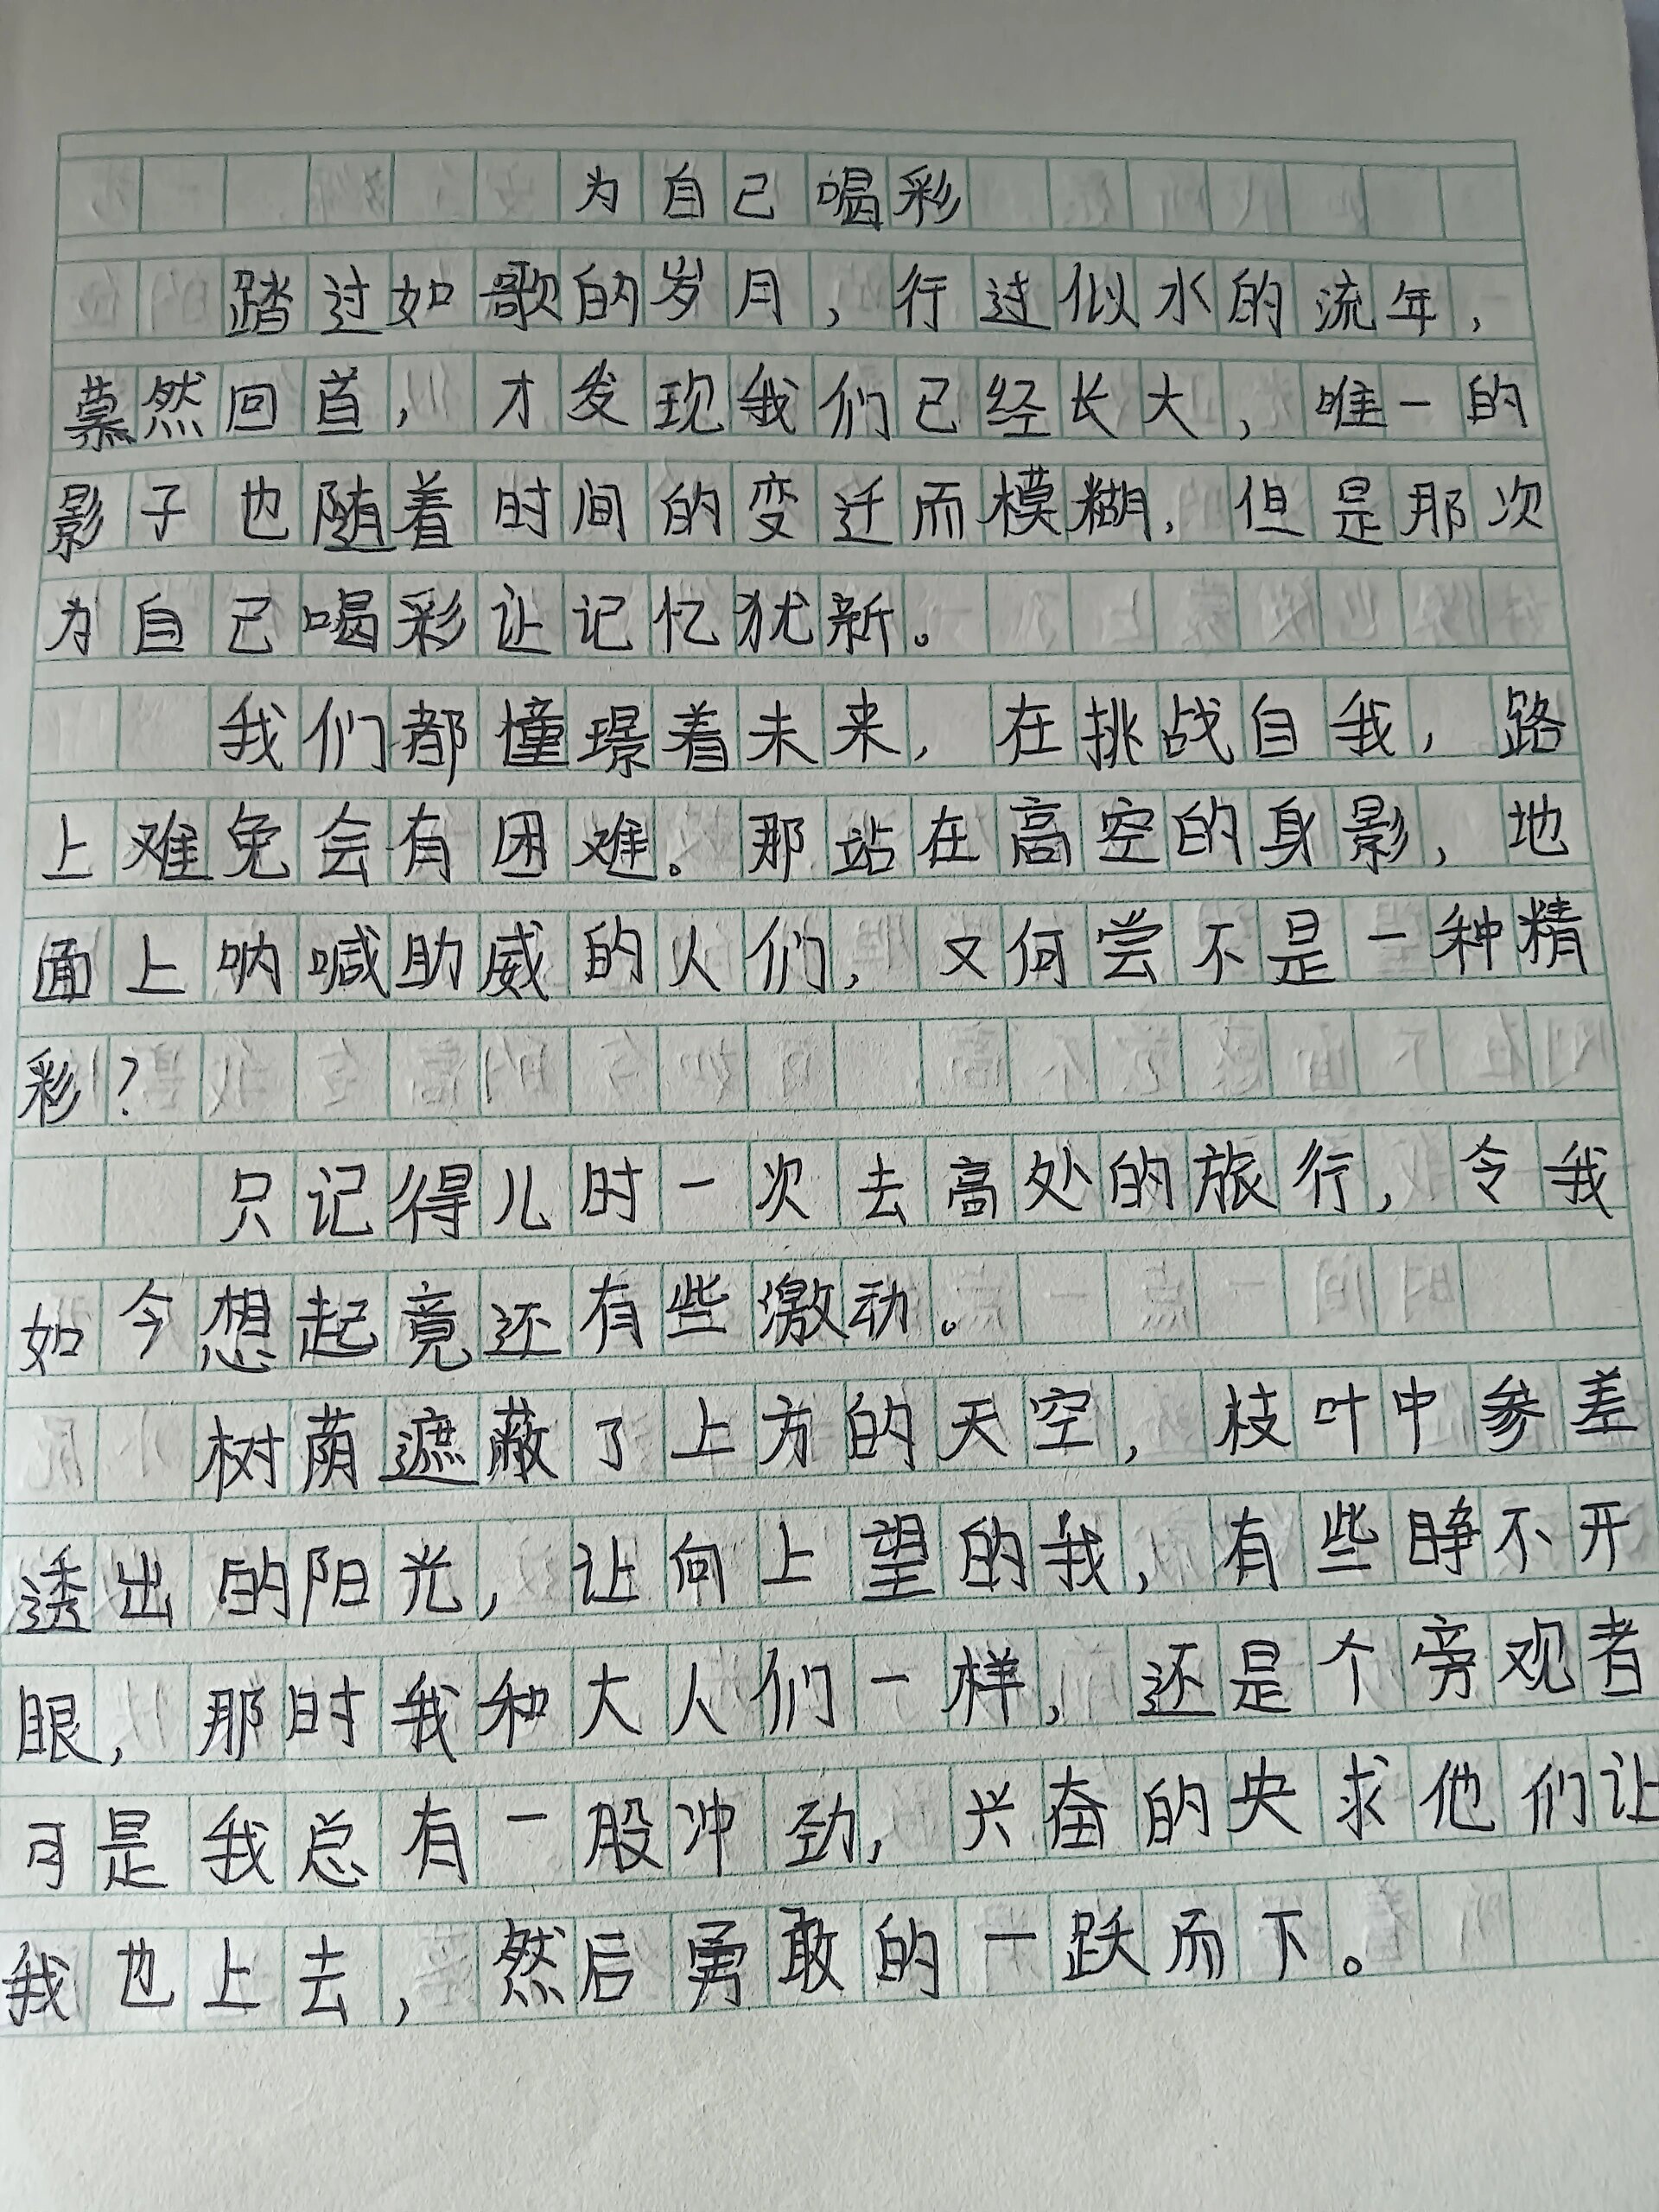 为自己喝彩
踏过如歌的岁月，行过似水的流年，
蓦然回首，才发现我们已经长大，唯一的
影子也随着时间的变迁而模糊，但是那次
为自己喝彩让记忆犹新。
我们都憧憬着未来，在挑战自我，路
上难免会有困难。那站在高空的身影，地
面上呐喊助威的人们，又何尝不是一种精
彩？
只记得儿时一次去高处的旅行，令我
如今想起竟还有些激动。
树荫遮蔽了上方的天空，枝叶中参差
透出的阳光，让向上望的我，有些睁不开
眼，那时我和大人们一样，还是个旁观者
可是我总有一股冲劲，兴奋的央求他们让
我也上去，然后勇敢的一跃而下。